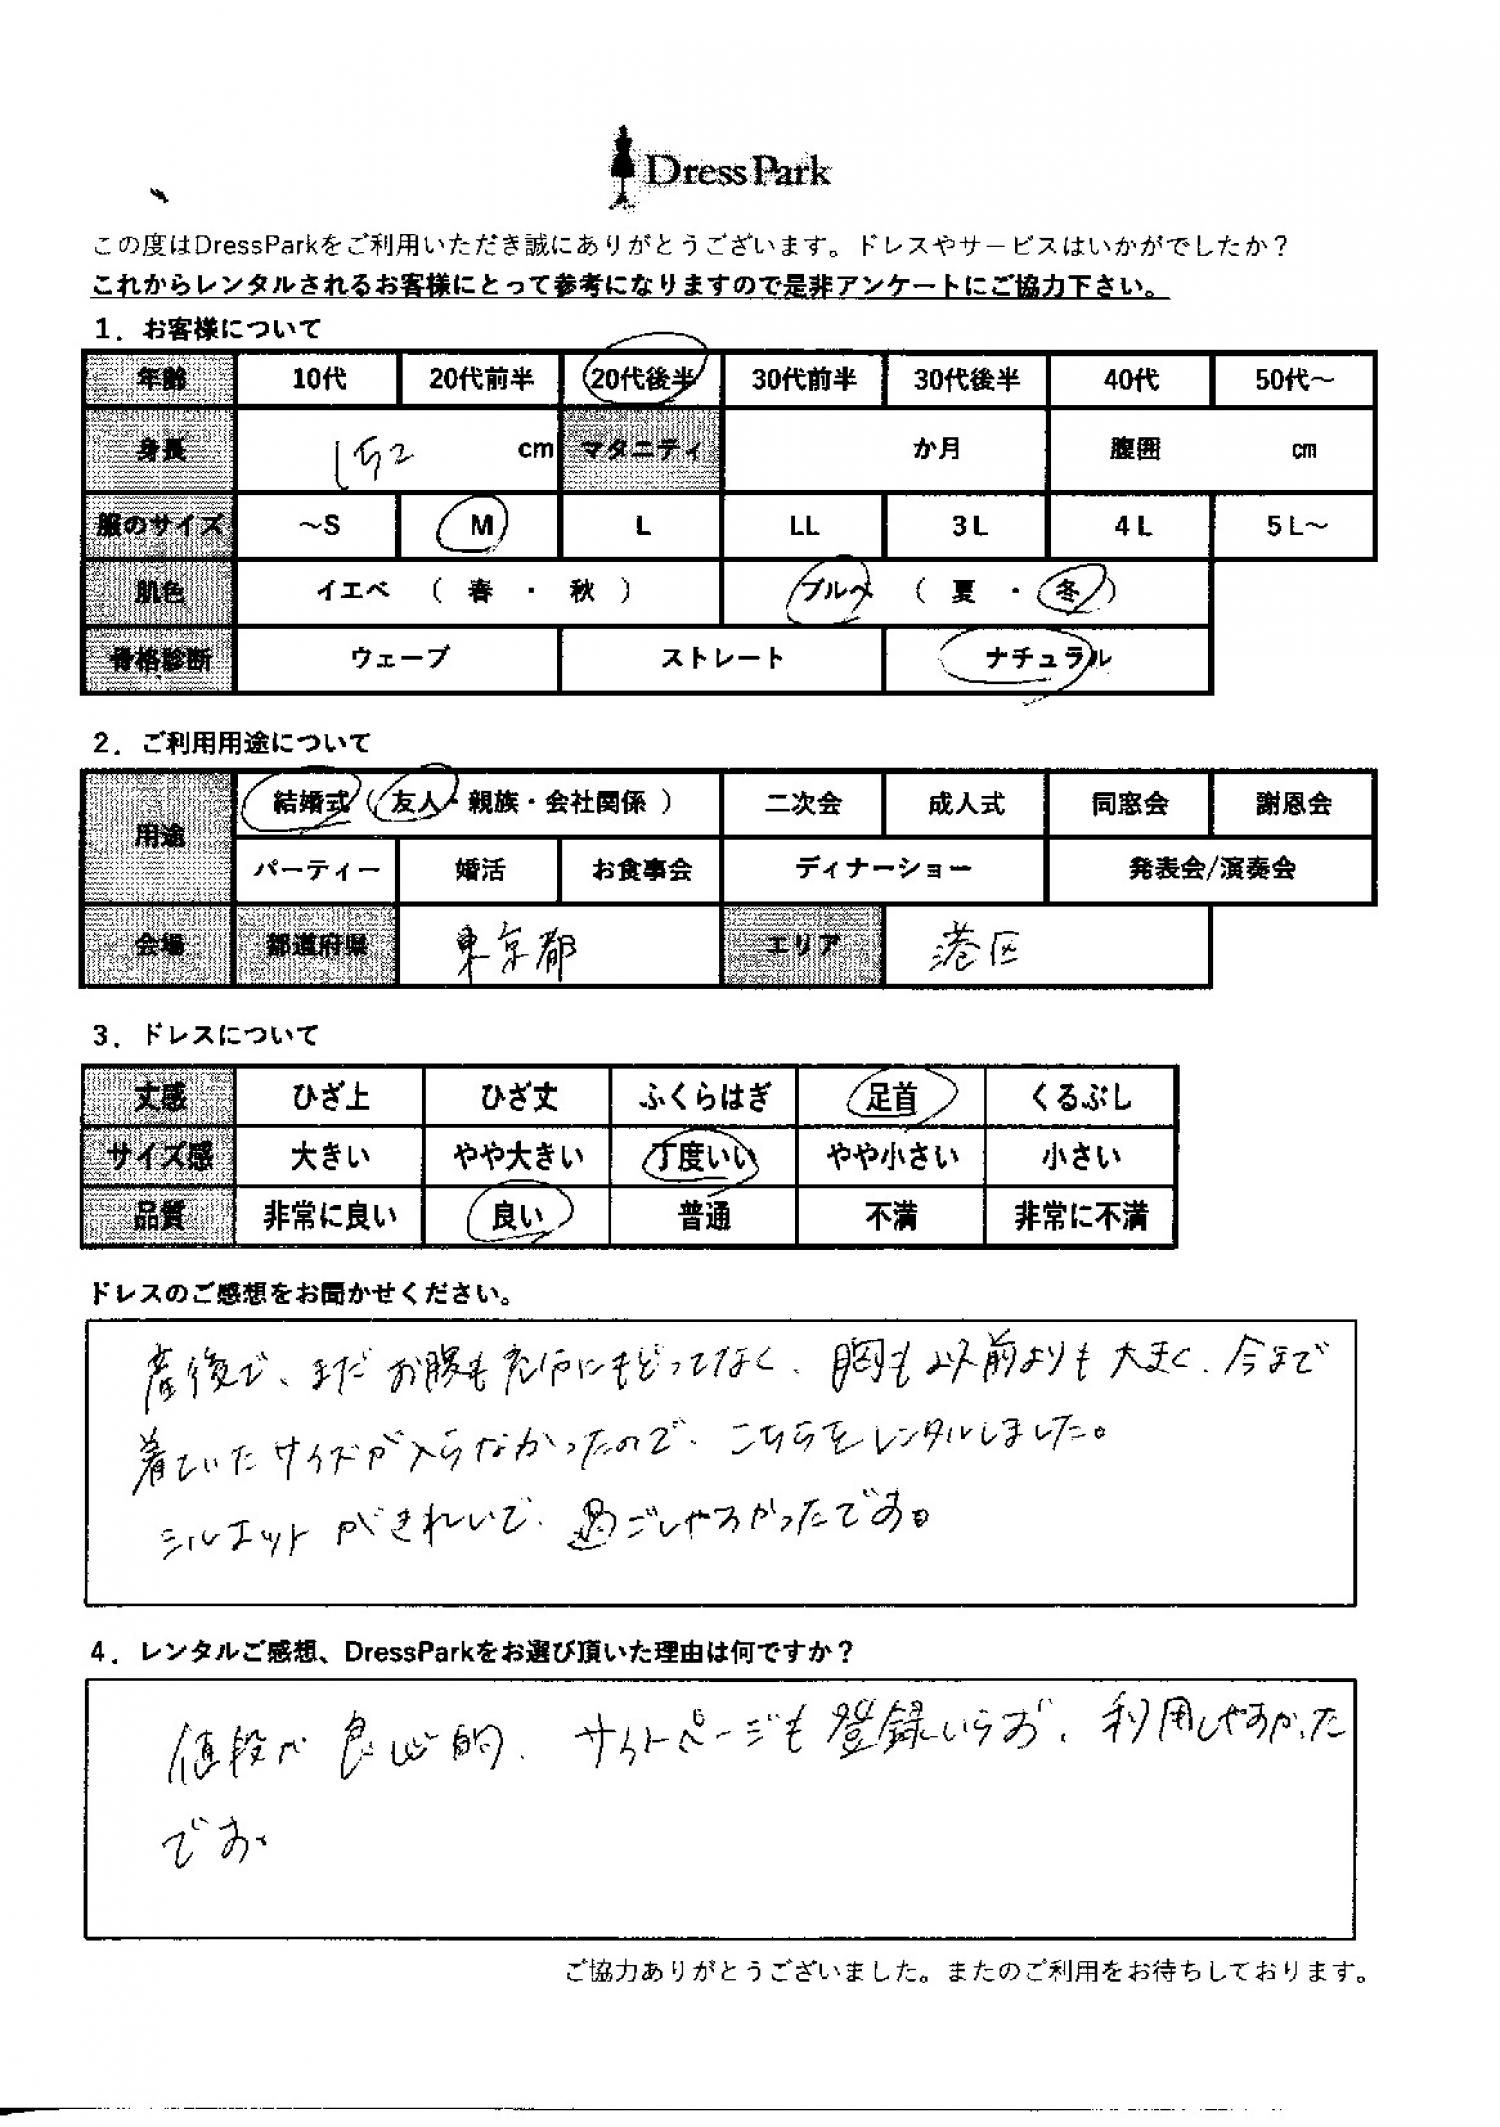 DressPark
この度はDressParkをご利用いただき誠にありがとうございます。ドレスやサービスはいかがでしたか？
これからレンタルされるお客様にとって参考になりますので是非アンケートにご協力下さい。
1．お客様について
年齢 10代 20代前半 20代後半 30代前半 30代後半 40代 50代～
身長 152 cm マタニティ か月 腹囲 cm
服のサイズ ～S M L LL 3L 4L 5L～
肌色 イエベ （ 春 ・ 秋 ） ブルベ （ 夏 ・ 冬 ）
骨格診断 ウェーブ ストレート ナチュラル
2．ご利用用途について
用途 結婚式（ 友人・親族・会社関係 ） 二次会 成人式 同窓会 謝恩会
パーティー 婚活 お食事会 ディナーショー 発表会/演奏会
会場 都道府県 東京都 エリア 港区
3．ドレスについて
丈感 ひざ上 ひざ丈 ふくらはぎ 足首 くるぶし
サイズ感 大きい やや大きい 丁度いい やや小さい 小さい
品質 非常に良い 良い 普通 不満 非常に不満
ドレスのご感想をお聞かせください。
産後で、まだお腹も にもどってなく、胸も以前よりも大きく、今まで
着ていたサイズが入らなかったので、こちらをレンタルしました。
シルエットがきれいで、過ごしやすかったです。
4．レンタルご感想、DressParkをお選び頂いた理由は何ですか？
値段が良心的、サイトページも登録いらず、利用しやすかった
です。
ご協力ありがとうございました。またのご利用をお待ちしております。